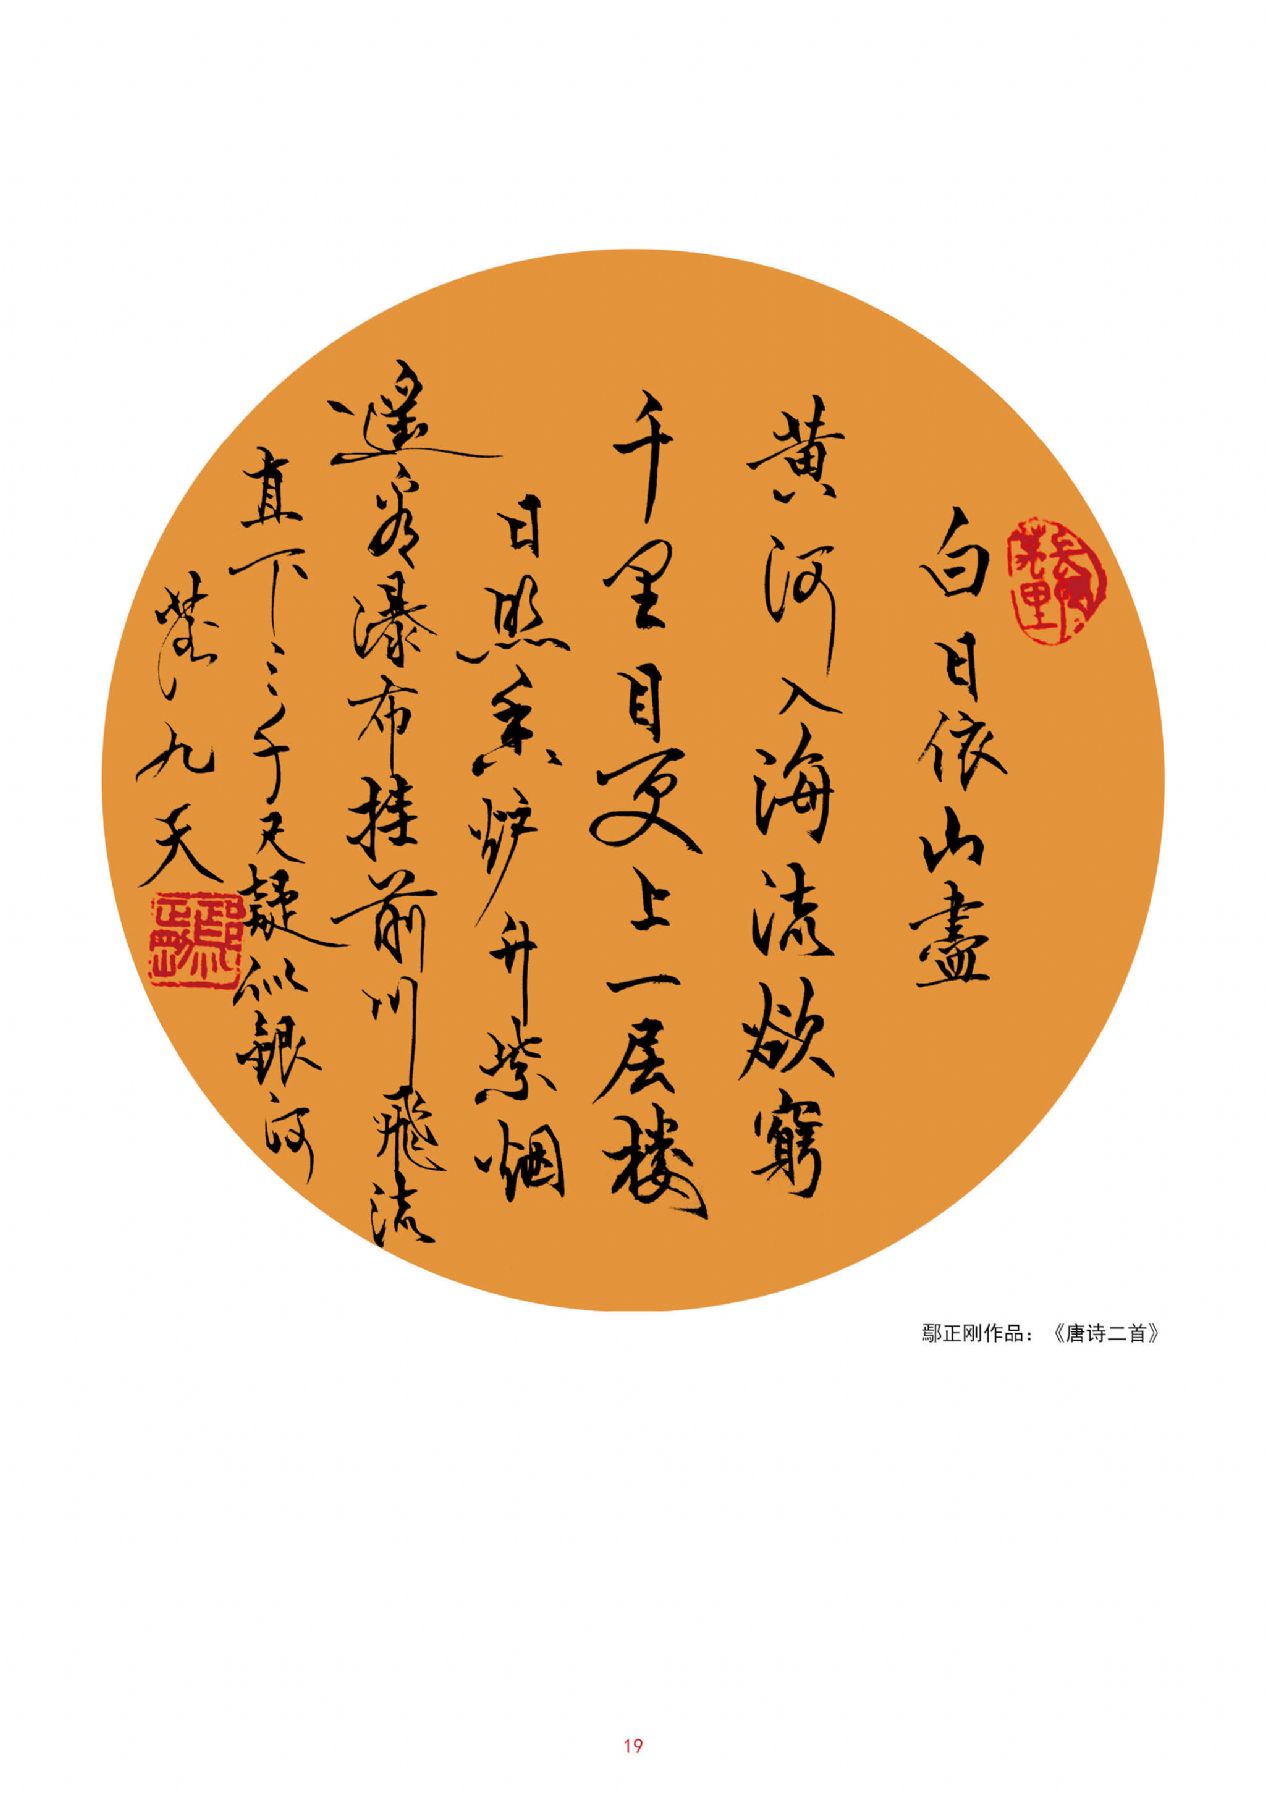 白日依山盡
黄河入海流欲窮
千里目更上一层楼
日照香炉升紫烟
遥看瀑布挂前川飛流
直下三千尺疑似銀河
落九天
鄢正刚作品：《唐诗二首》
19